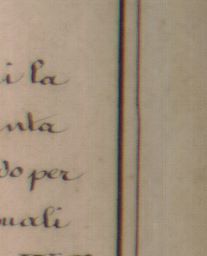 i la
nta
do per
uali